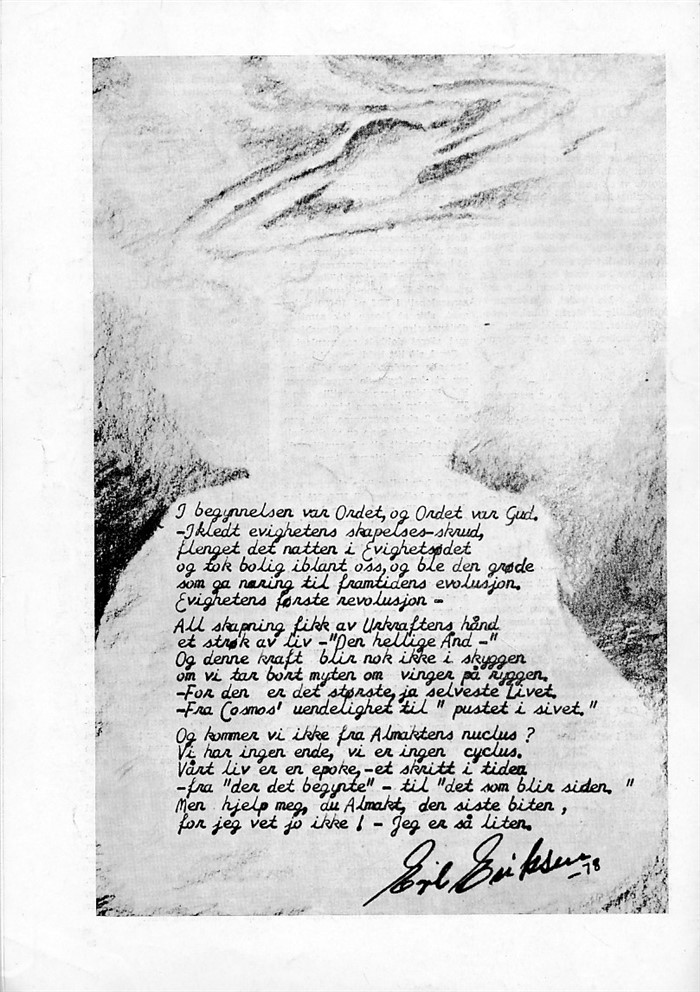 I begynnelsen var Ordet, og Ordet var Gud.
-Ikledt evighetens skapelses-skrud,
flenget det natten i Evighetsødet
og tok bolig iblant oss, og ble den grøde
som ga næring til framtidens evolusjon.
Evighetens første revolusjon -
All skapning fikk av Urkraftens hånd
et strøk av liv -"Den hellige Ånd -"
Og denne kraft blir nok ikke i skyggen
om vi tar bort myten om vinger på ryggen.
-For den er det største, ja selveste Livet.
-Fra Cosmos' uendelighet til " pustet i sivet."
Og kommer vi ikke fra Almaktens nuclus ?
Vi har ingen ende, vi er ingen cyclus.
Vårt liv er en epoke, -et skritt i tiden
-fra "der det begynte" - til "det som blir siden. "
Men hjelp meg, du Almakt, den siste biten ,
for jeg vet jo ikke ! - Jeg er så liten.
Eriksen -78